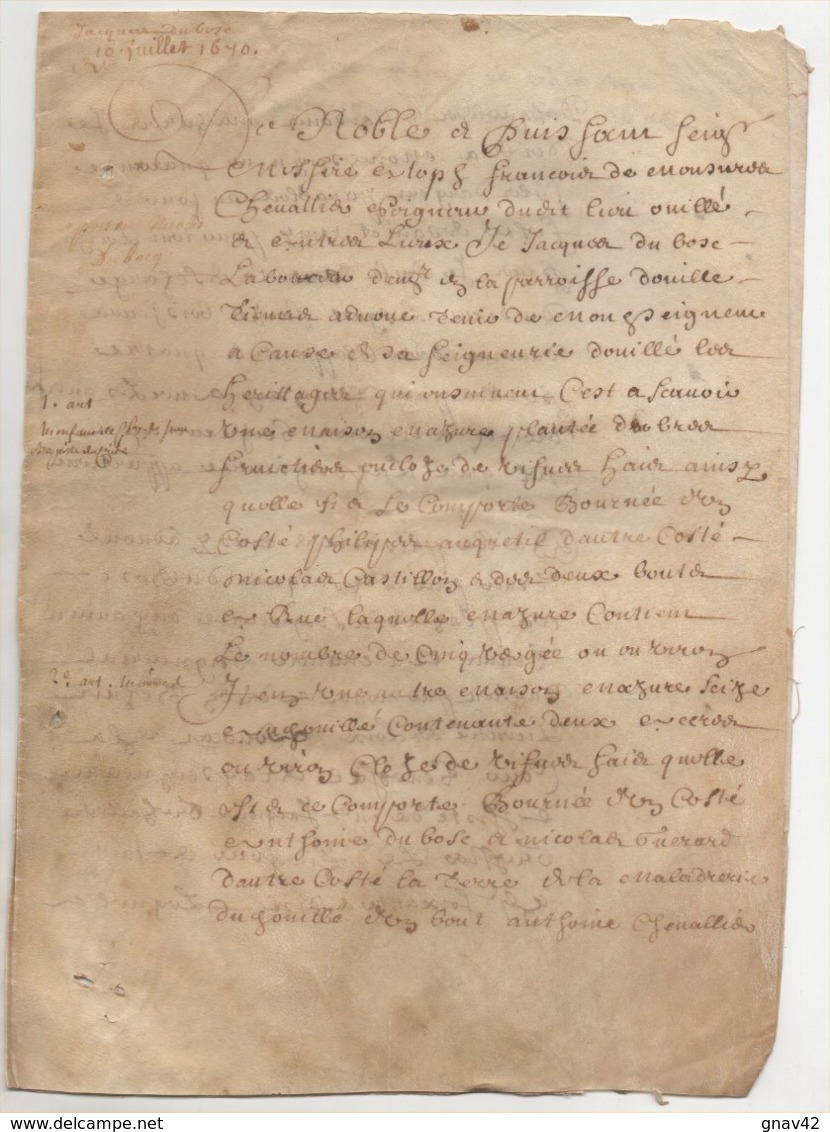 Jacques du bosc
10 juillet 1670.
De Noble et Puissant seigr
Messire Christophe francois de monsures
Chevallier seigneur dudit lieu ouillé
et autres Lieux Je Jacques du bosc
Laboureur demt en la parroisse douille
Tiens et advoue tenir de mondseigneur
a Cause de sa seigneurie douillé les
herittages qui ensuivent C'est a scavoir
1. art
une maison mazure plantée darbres
fruictiers enclose de vifves haies ainsy
quelle se Comporte Bournée dun
Costé philippes anquetil dautre Costé
nicolas Castillon et des deux bouts
la Rue laquelle mazure Contient
Le nombre de Cinq vergée ou environ
2e art.
Item une autre maison mazure seize
audit ouillé Contenante deux accres
ou viron Close de vifves haies quelle
se Comporte Bournée dun Costé
Anthoine du bosc et nicolas Guerard
dautre Costé la terre de la maladrerie
dudit ouillé dun bout anthoine Chevallier
delcampe.net
gnav42